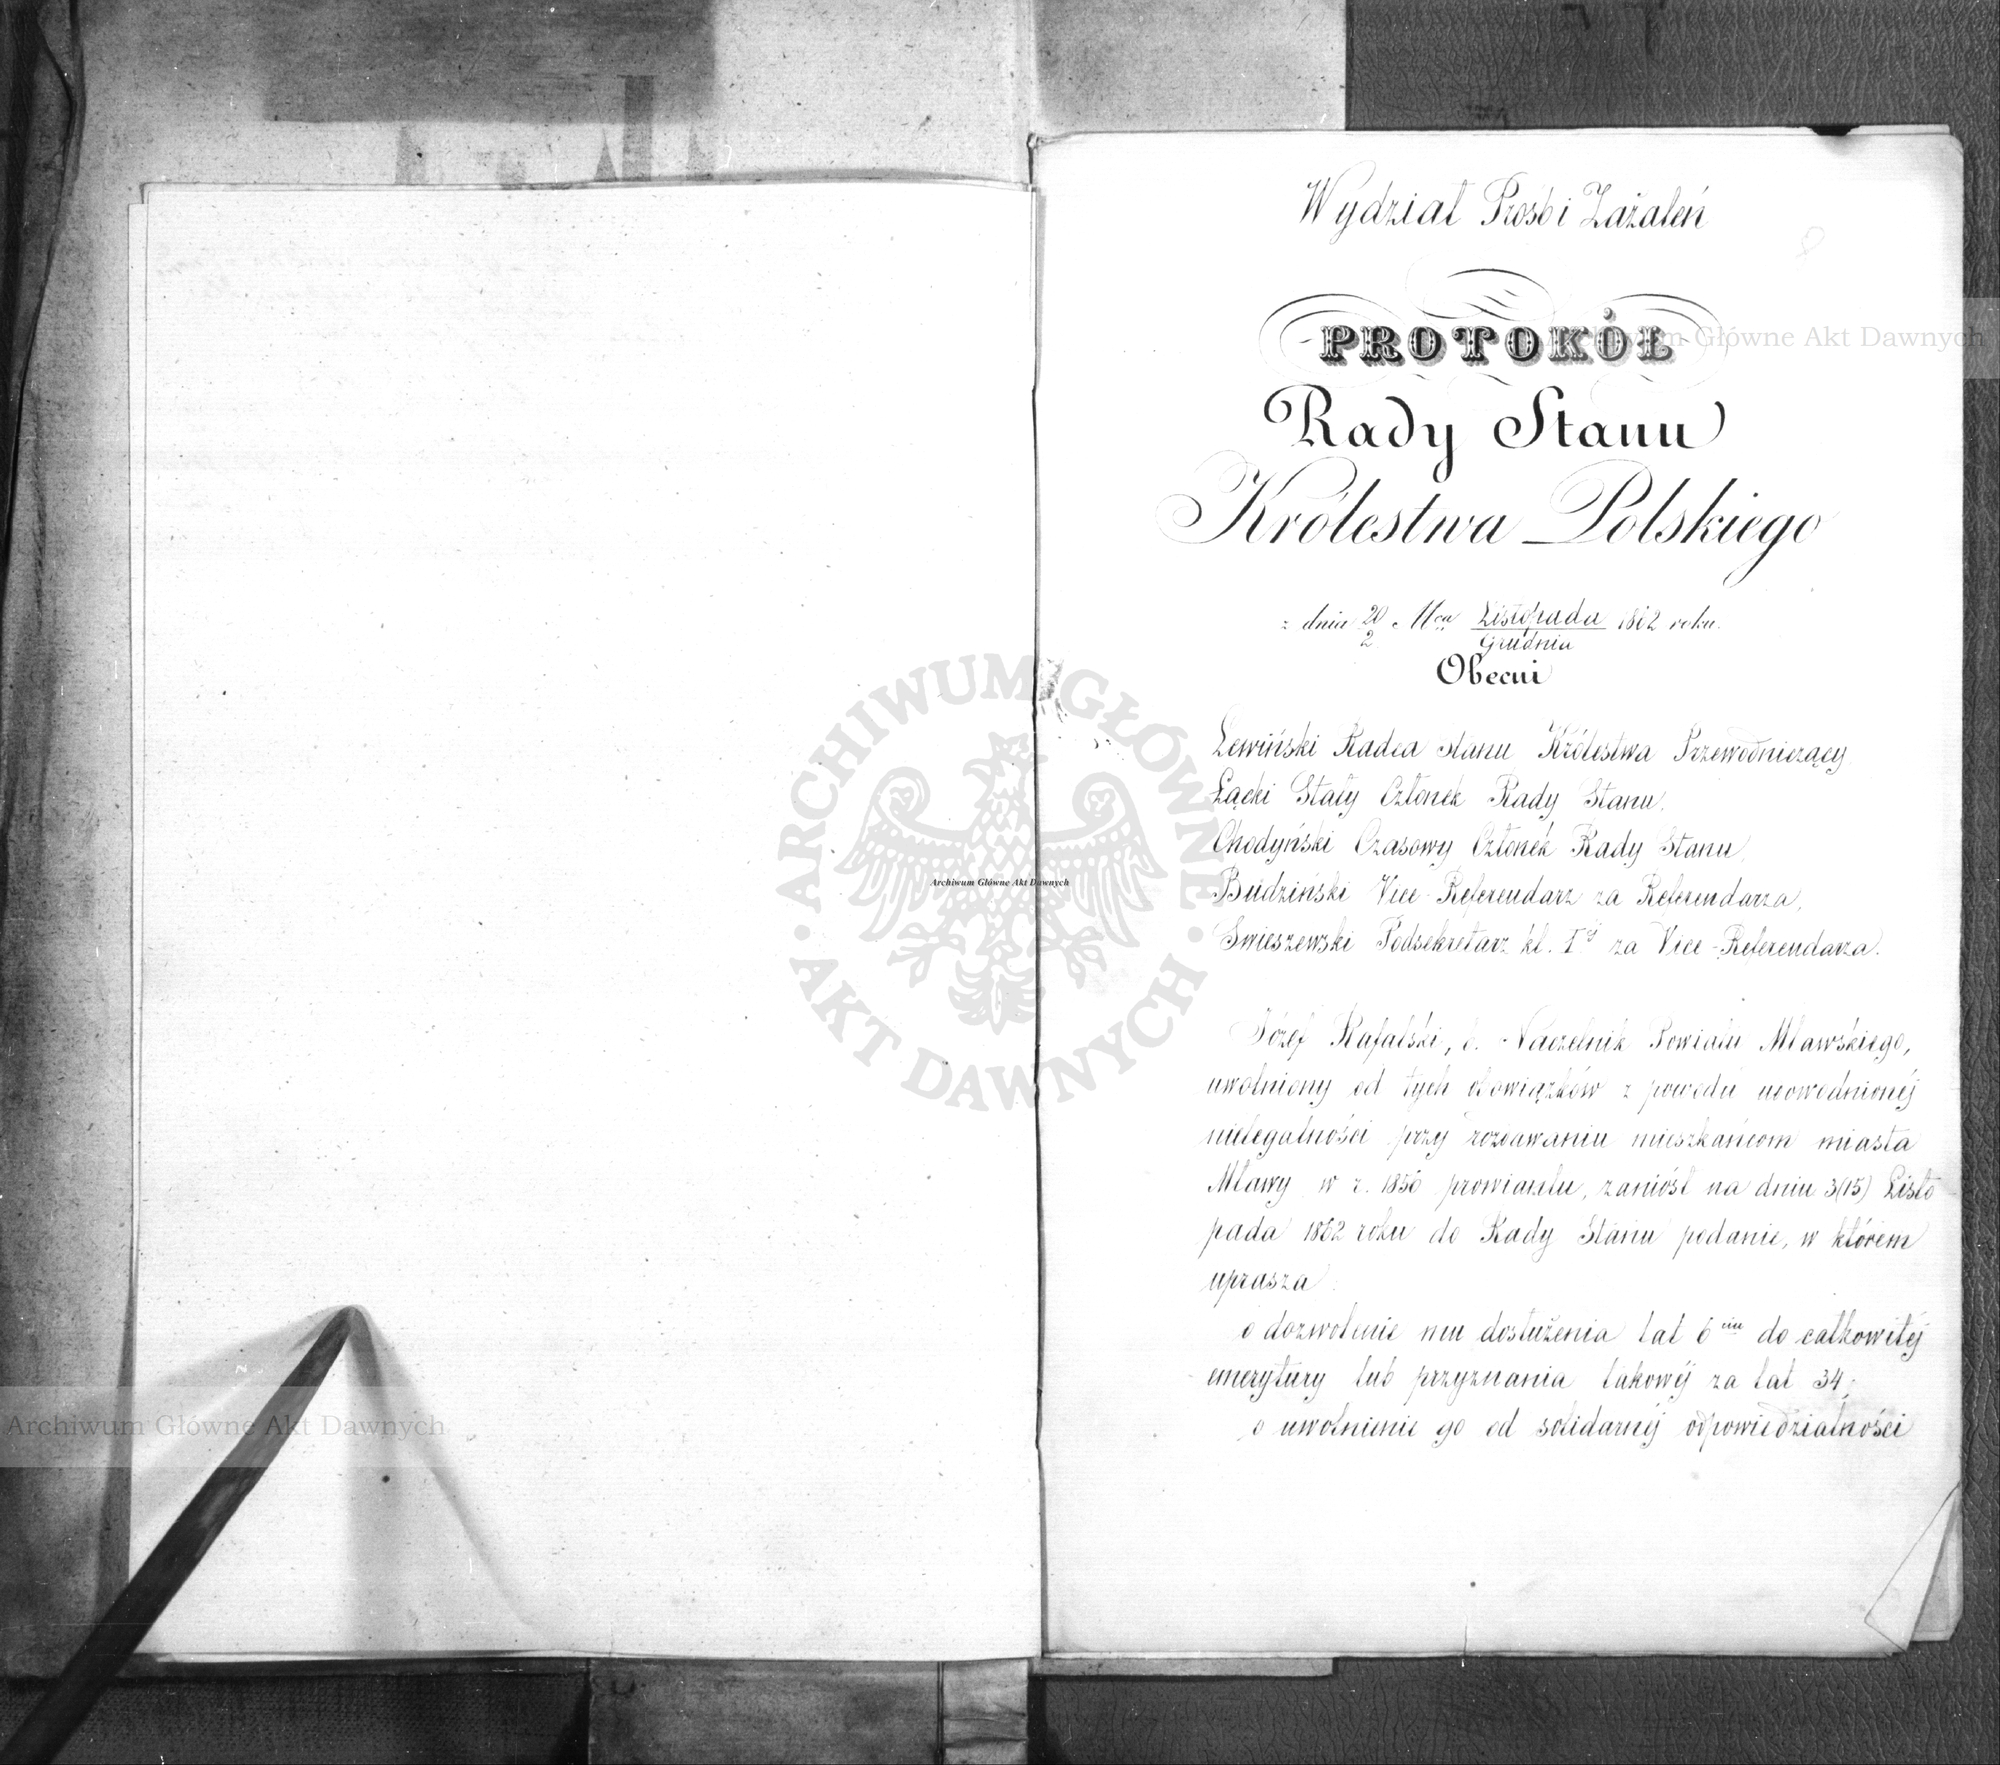 Wydział Próśb i Zażaleń
PROTOKÓŁ
Rady Stanu
Królestwa Polskiego
z dnia 20/2 Mca Listopada/Grudnia 1862 roku.
Obecni
Lewiński Radca Stanu Królestwa Przewodniczący
Łącki Stały Członek Rady Stanu,
Chodyński Czasowy Członek Rady Stanu,
Budziński Vice-Referendarz za Referendarza,
Swieszewski Podsekretarz kl. Iéj za Vice-Referendarza.
Józef Rafalski, b. Naczelnik Powiatu Mławskiego,
uwolniony od tych obowiązków z powodu udowodnionéj
nielegalności przy rozdawaniu mieszkańcom miasta
Mławy w r. 1856 prowiantu, zaniósł na dniu 3(15) Listo
pada 1862 roku do Rady Stanu podanie, w którem
uprasza:
o dozwolenie mu dosłużenia lat 6ciu do całkowitéj
emerytury lub przyznania takowéj za lat 34;
o uwolnienie go od solidarnéj odpowiedzialności
Archiwum Główne Akt Dawnych
Archiwum Główne Akt Dawnych
Archiwum Główne Akt Dawnych
ARCHIWUM GŁÓWNE · AKT DAWNYCH ·